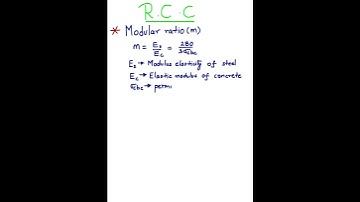 R.C.C
* Modular ratio (m)
m = Es/Ec = 280/3σcbc
Es → Modulus elasticity of steel
Ec → Elastic modulus of concrete
σcbc → permi